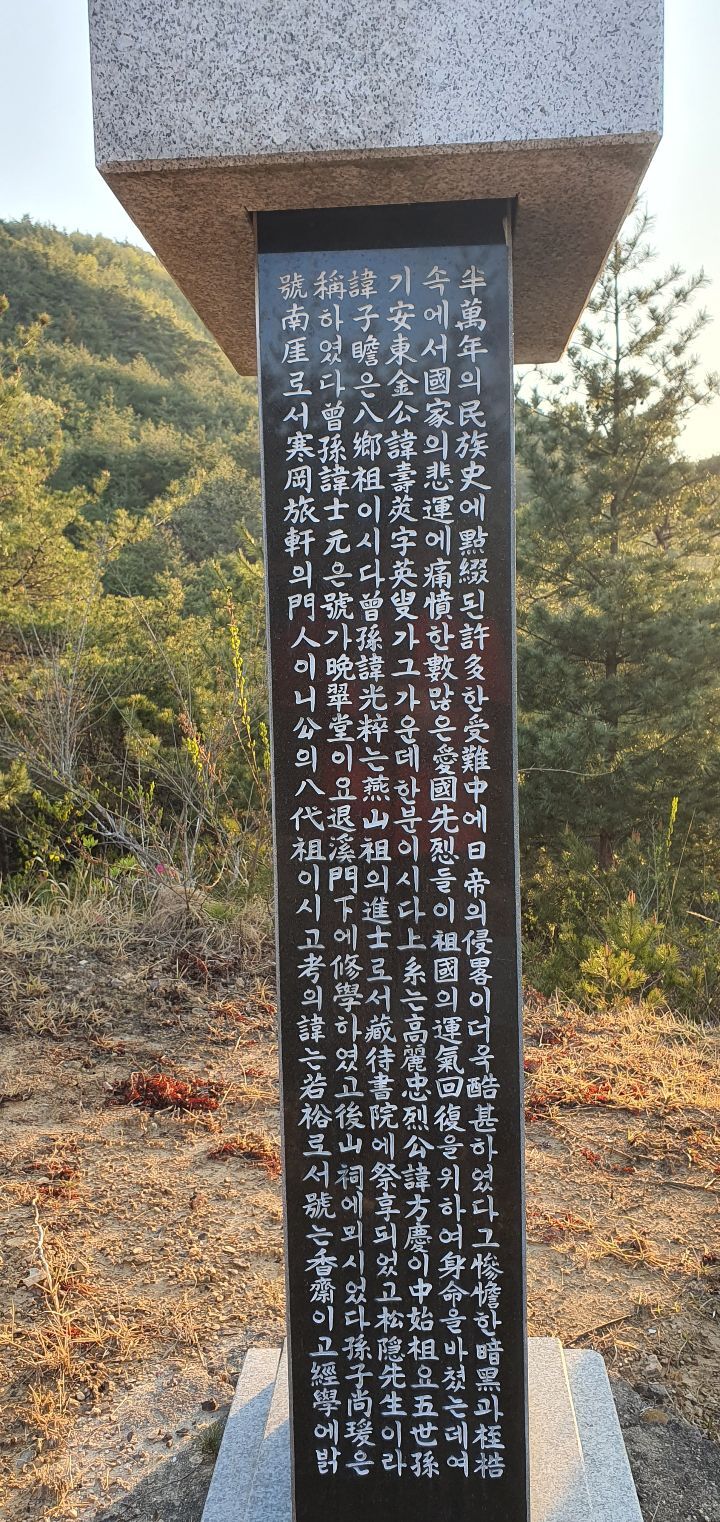 半萬年의民族史에點綴된許多한受難中에日帝의侵畧이더욱酷甚하였다그慘憺한暗黑과桎梏
속에서國家의悲運에痛憤한數많은愛國先烈들이祖國의運氣回復을위하여身命을바쳤는데여
기安東金公諱壽英字英叟가그가운데한분이시다上系는高麗忠烈公諱方慶이中始祖요五世孫
諱子瞻은八鄕祖이시다曾孫諱光粹는燕山祖의進士로서藏待書院에祭享되었고松隱先生이라
稱하였다曾孫諱士元은號가晩翠堂이요退溪門下에修學하였고後山祠에뫼시었다孫子尙瑗은
號南厓로서寒岡旅軒의門人이니公의八代祖이시고考의諱는若裕로서號는香齋이고經學에밝